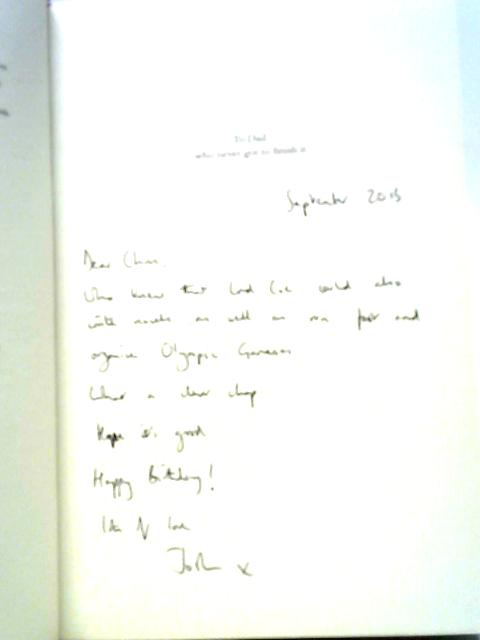 To Dad
who never got to finish it
September 2015
Dear Chris,
Who knew that Lord Coe could also
write novels as well as run fast and
organise Olympic Games
What a clever chap
Hope it's good
Happy Birthday!
lots of love
John x